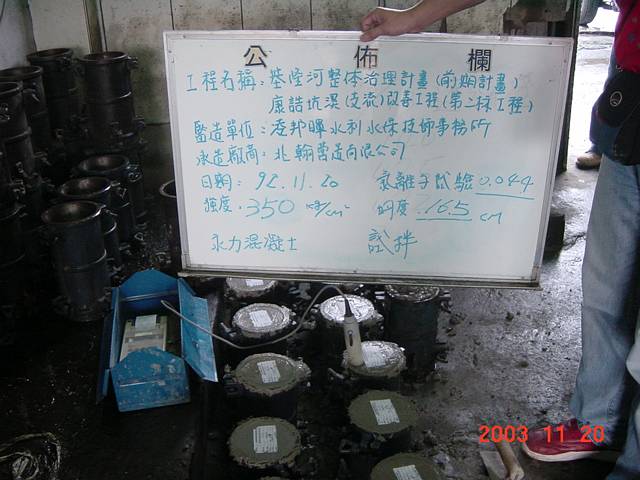 公佈欄
工程名稱:基隆河整体治理計畫(前期計畫)
康誥坑溪(支流)改善工程(第二標工程)
監造單位:凌邦暉水利水保技師事務所
承造廠商:北翰營造有限公司
日期:92.11.20 氯離子試驗0.044
強度:350 kg/cm² 坍度:16.5 cm
永力混凝土 試拌
2003 11 20